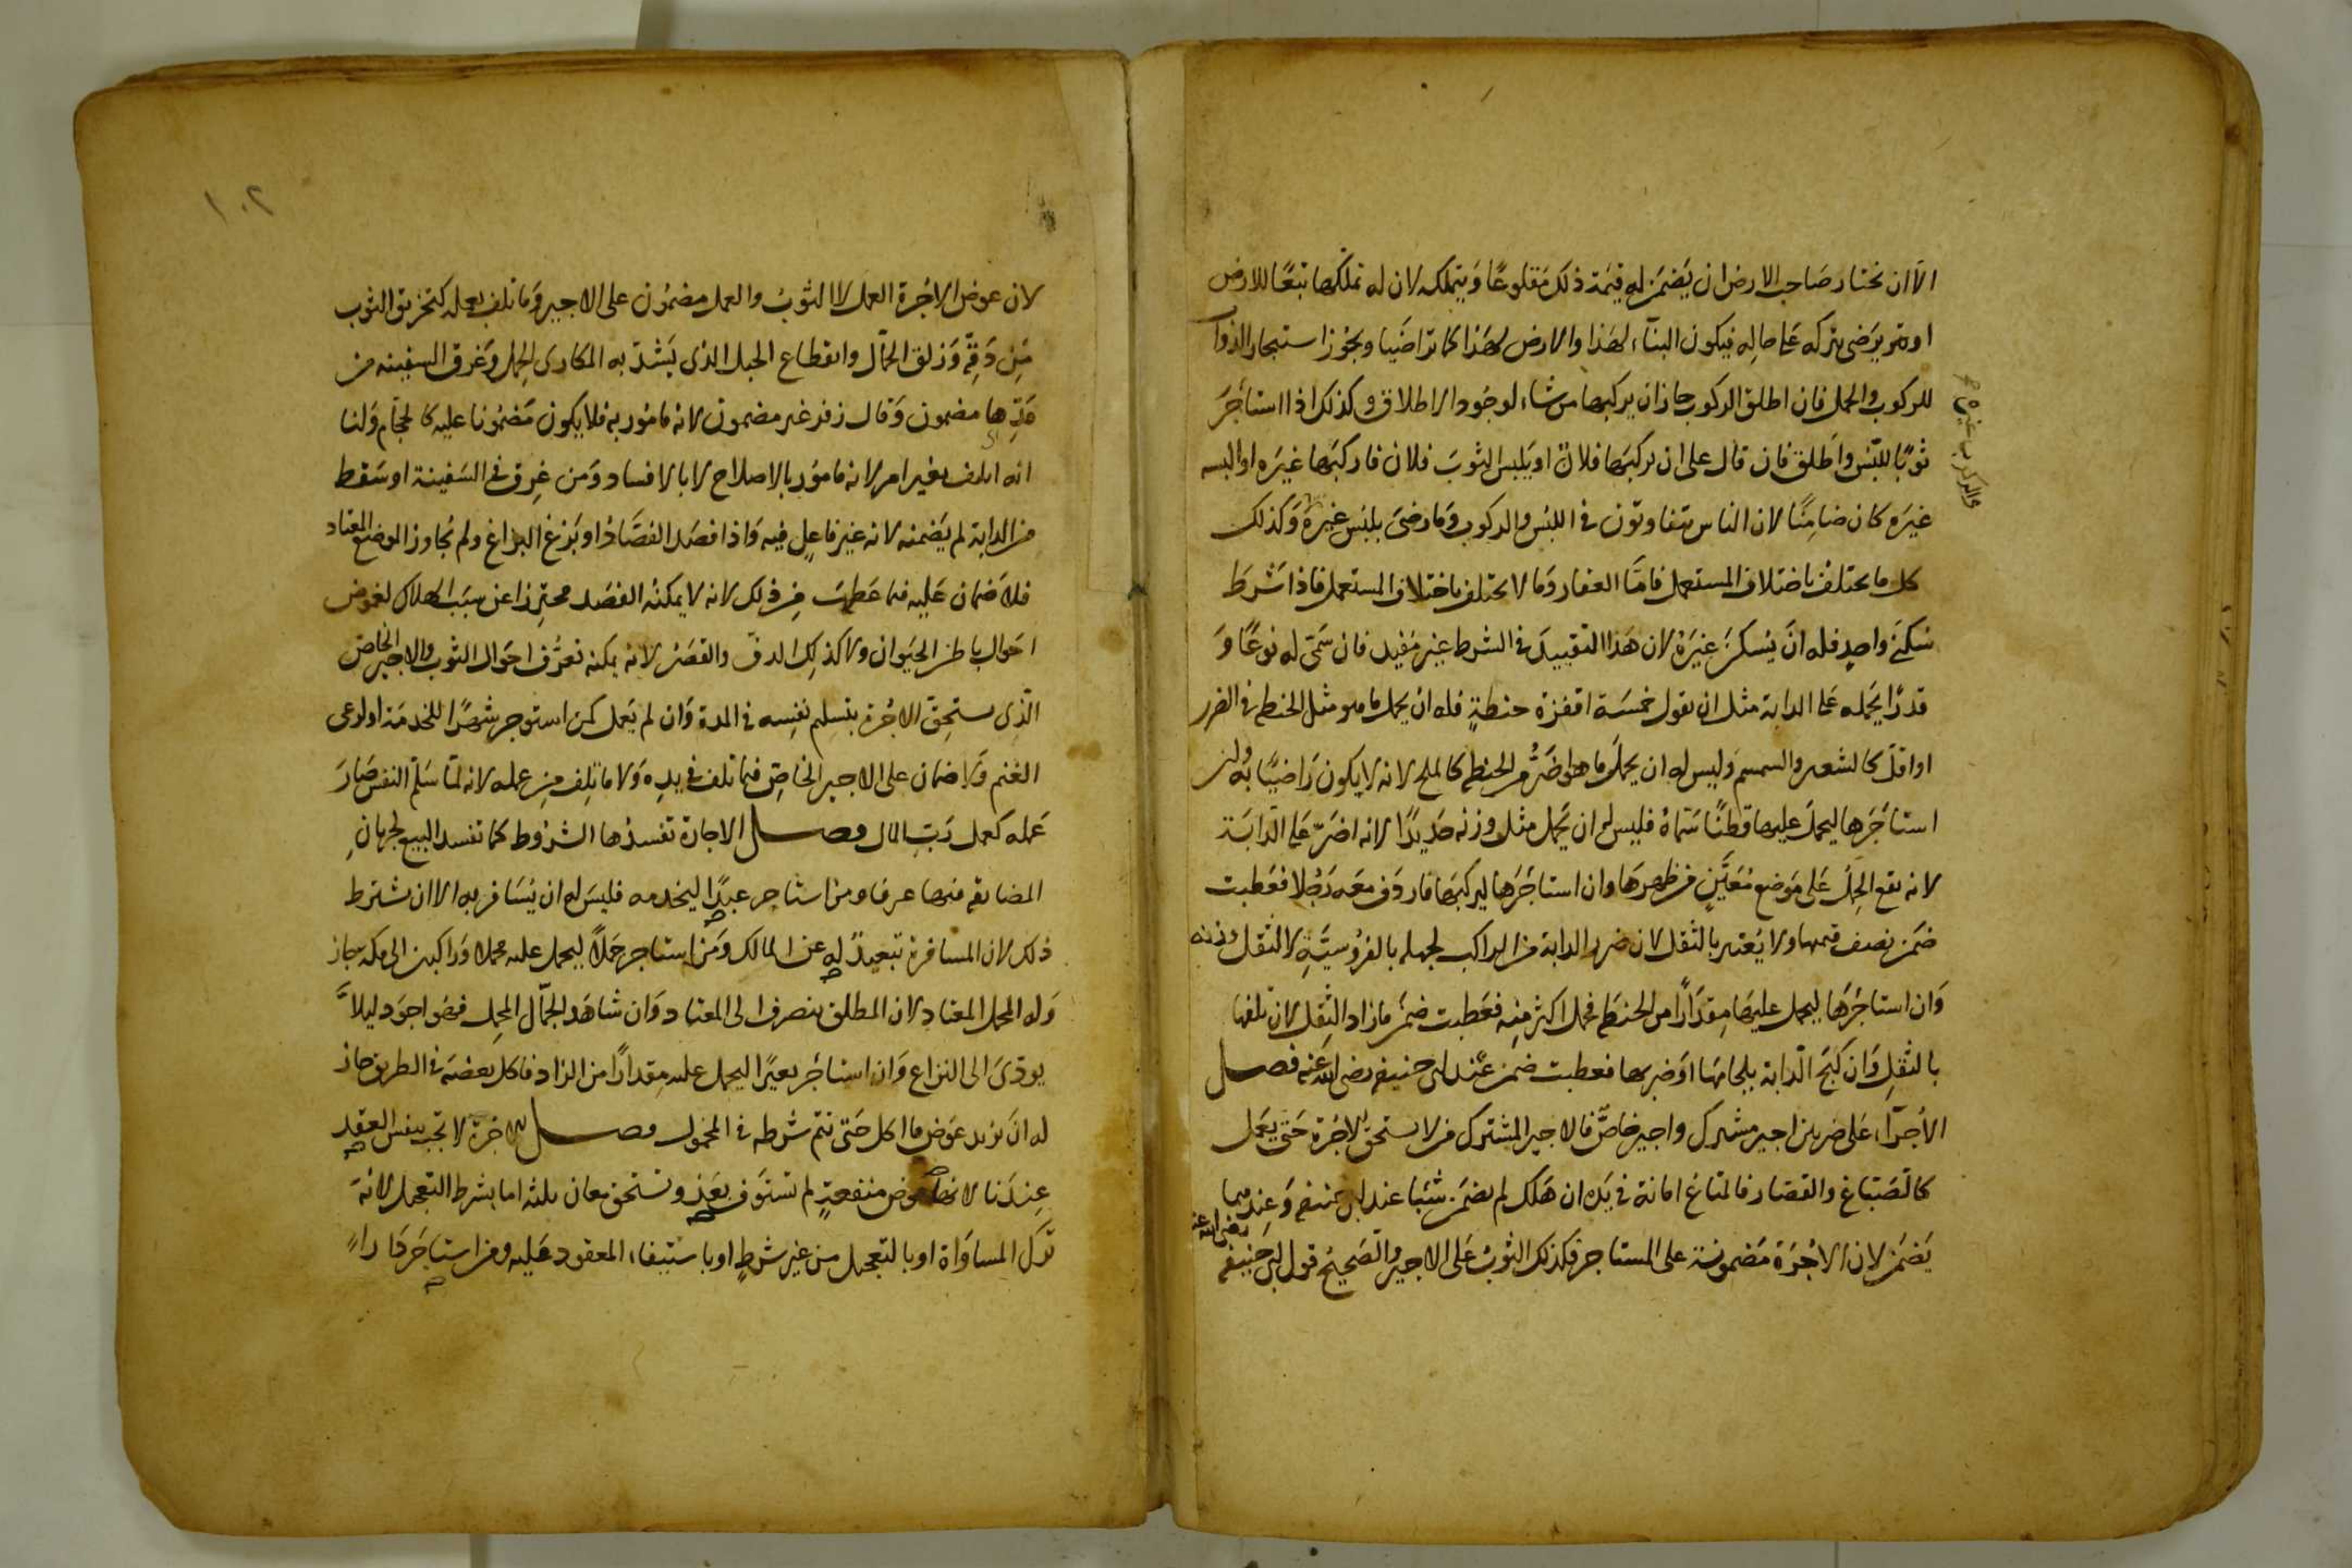 الا ان يختار صاحب الارض ان يضمن له قيمة ذلك مقلوعًا ويتملكه لان له تملكها تبعًا للارض
او يرضى بتركه على حاله فيكون البناء لهذا والارض لهذا كما تراضيا ويجوز استيجار الدواب
للركوب والحمل فان اطلق الركوب جاز ان يركبها من شاء لوجود الاطلاق وكذلك اذا استأجر
ثوبًا للبس واطلق فان قال على ان يركبها فلان او يلبس الثوب فلان فاركبها غيره او البسه
غيره كان ضامنًا لان الناس يتفاوتون في اللبس والركوب وما رضى بلبس غيره وكذلك
كل ما يختلف باختلاف المستعمل فاما العقار وما لا يختلف باختلاف المستعمل فاذا شرط
سكنى واحد فله ان يسكن غيره لان هذا التقييد في الشرط غير مفيد فان سمى له نوعًا و
قدرًا يحمله على الدابة مثل ان يقول خمسة اقفزة حنطةٍ فله ان يحمل ما هو مثل الحنطة في الضرر
او اقل كالشعير والسمسم وليس له ان يحمل ما هو اضر من الحنطة كالملح لانه لا يكون راضيًا به وان
استأجرها ليحمل عليها قطنًا سماه فليس له ان يحمل مثل وزنه حديدًا لانه اضر على الدابة
لانه يقع الحمل على موضع معين من ظهرها وان استاجرها ليركبها فاردف معه رجلا فعطبت
ضمن نصف قيمتها ولا يعتبر بالثقل لان ضرر الدابة من الراكب لجهله بالفروسية لا لثقل وزنه
وان استاجرها ليحمل عليها مقدارًا من الحنطة فحمل اكثر منه فعطبت ضمن ما زاد الثقل لان تلفها
بالثقل وان كبح الدابة بلجامها او ضربها فعطبت ضمن عند ابى حنيفة رضى الله عنه فصل
الأجراء على ضربين اجير مشترك واجير خاص فالاجير المشترك من لا يستحق الاجرة حتى يعمل
كالصباغ والقصار فالمتاع امانة في يده ان هلك لم يضمن شيئا عند ابى حنيفة وعندهما
رضى الله عنه
يضمن لان الاجرة مضمونة على المستاجر فكذلك الثوب على الاجير والصحيح قول ابى حنيفة
١٠٢
لان عوض الاجرة العمل لا الثوب والعمل مضمون على الاجير وما تلف بعمله كتخريق الثوب
من دقه وزلق الحمال وانقطاع الحبل الذى يشد به المكارى الحمل وغرق السفينه من
مدها مضمون وقال زفر غير مضمون لانه مامور به فلا يكون مضمونا عليه كالحجام ولنا
انه اتلف بغير امر لانه مامور بالاصلاح لا بالافساد ومن غرق في السفينة او سقط
من الدابة لم يضمنه لانه غير فاعل فيه واذا فصد الفصاد او بزغ البزاغ ولم يجاوز الموضع المعتاد
فلا ضمان عليه فيما عطب من ذلك لانه لا يمكنه الفصد محترزا عن سبب الهلاك لغموض
احوال باطن الحيوان ولا كذلك الدق والقصر لانه يمكنه تعرف احوال الثوب والاجير الخاص
الذى يستحق الاجرة بتسليم نفسه في المدة وان لم يعمل كمن استوجر شهرًا للخدمة او لرعى
الغنم ولا ضمان على الاجير الخاص فيما تلف في يده ولا ما تلف من عمله لانه لما سلم النفس صار
عمله كعمل رب المال فصل الاجارة تفسدها الشروط كما تفسد البيع لجريان
المضايقة فيها عرفا ومن استاجر عبدًا ليخدمه فليس له ان يسافر به الا ان يشترط
ذلك لان المسافرة تبعيد له عن المالك ومن استاجر جملاً ليحمل عليه محملا وراكبين الى مكة جاز
وله المحمل المعتاد لان المطلق ينصرف الى المعتاد وان شاهد الجمال المحمل فهو اجود ليلا
يودى الى النزاع وان استأجر بعيرًا ليحمل عليه مقدارًا من الزاد فاكل بعضه في الطريق جاز
له ان يرد عوض ما اكل حتى يتم شرطه في المحمول فصل الاجرة لا تجب بنفس العقد
عندنا لانها عوض منفعةٍ لم تستوف بعد وتستحق بمعان ثلثة اما بشرط التعجيل لانه
ترك المساواة او بالتعجيل من غير شرط او باستيفاء المعقود عليه ومن استاجر دارًا